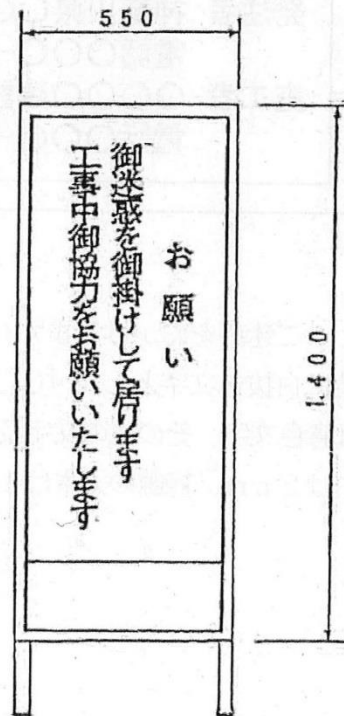 550
お願い
御迷惑を御掛けして居ります
工事中御協力をお願いいたします
1400